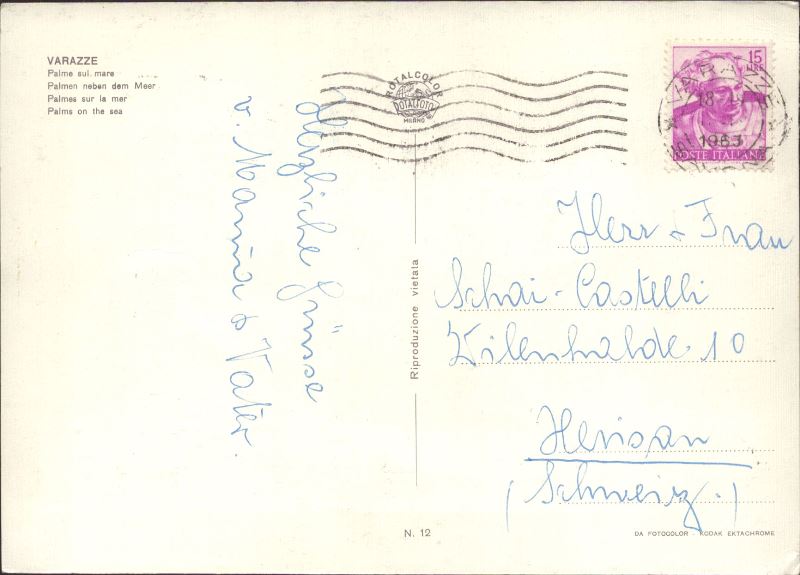 VARAZZE
Palme sul mare
Palmen neben dem Meer
Palmes sur la mer
Palms on the sea
Herzliche Grüsse
v. Mama & Vater.
ROTALCOLOR
ROTALFOTO
MILANO
15
LIRE
POSTE ITALIANE
VARAZZE
18
1963
Riproduzione vietata
Herr u Frau
Schai-Castelli
Wilenhalde 10
Herisau
(Schweiz.)
N. 12
DA FOTOCOLOR - KODAK EKTACHROME